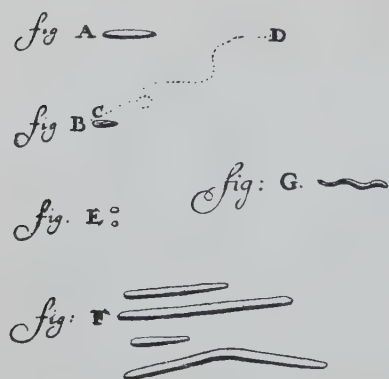 fig A
D
C
fig B
fig: G.
fig. E
fig: F